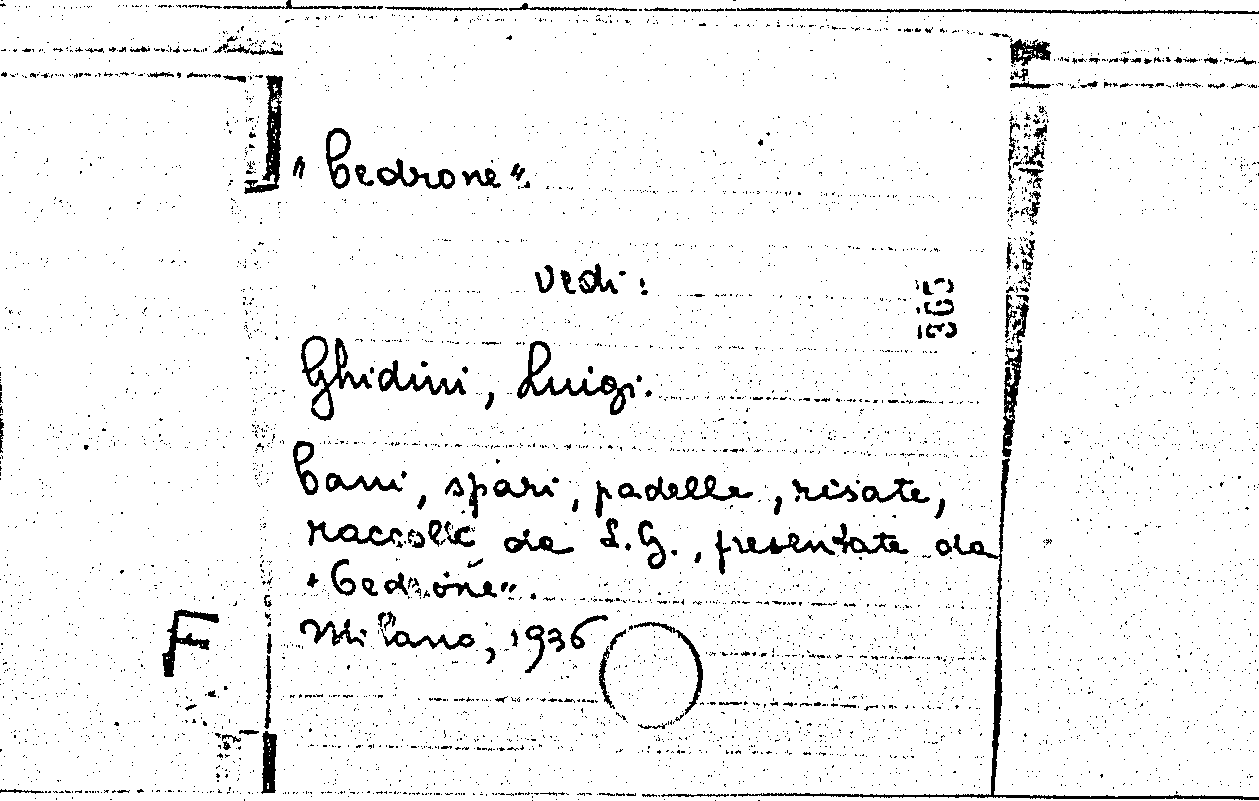 "Cedrone".
vedi:
365
Ghidini, Luigi.
Cani, spari, padelle, risate,
raccolte da L.G., presentate da
"Cedrone".
F
Milano, 1936